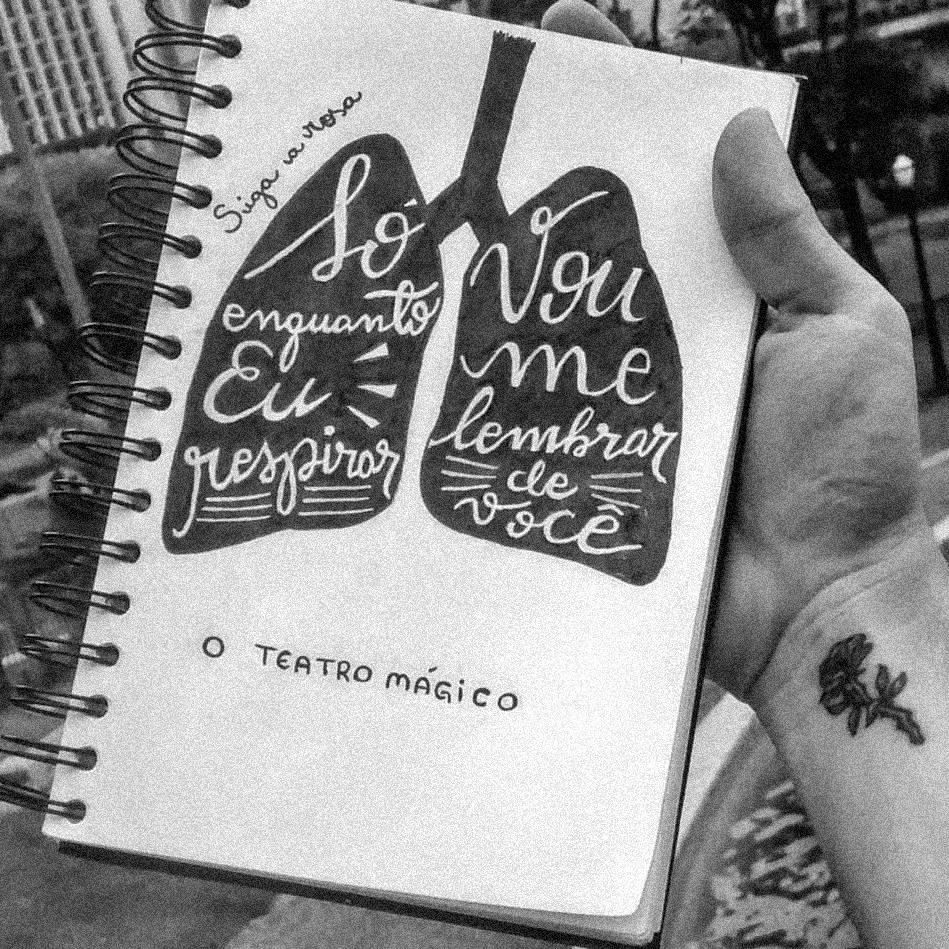 Siga a rosa
Só
enquanto
Eu
respirar
Vou
me
lembrar
de
você
O TEATRO MÁGICO